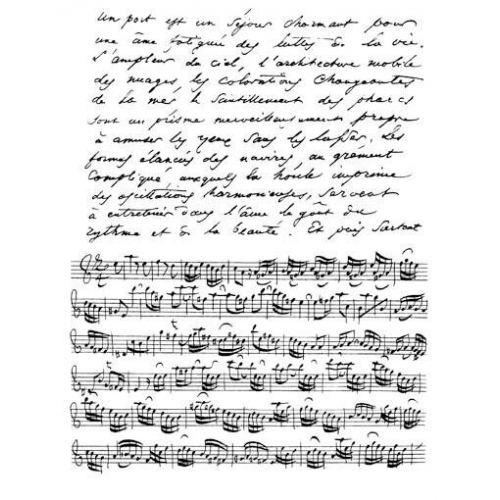 un port est un séjour charmant pour
une âme fatiguée des luttes de la vie.
L'ampleur du ciel, l'architecture mobile
des nuages, les colorations changeantes
de la mer, le scintillement des phares
sont un prisme merveilleusement propre
à amuser les yeux sans les lasser. Les
formes élancées des navires, au gréement
compliqué, auxquels la houle imprime
des oscillations harmonieuses, servent
à entretenir dans l'âme le goût du
rythme et de la beauté. Et puis surtout